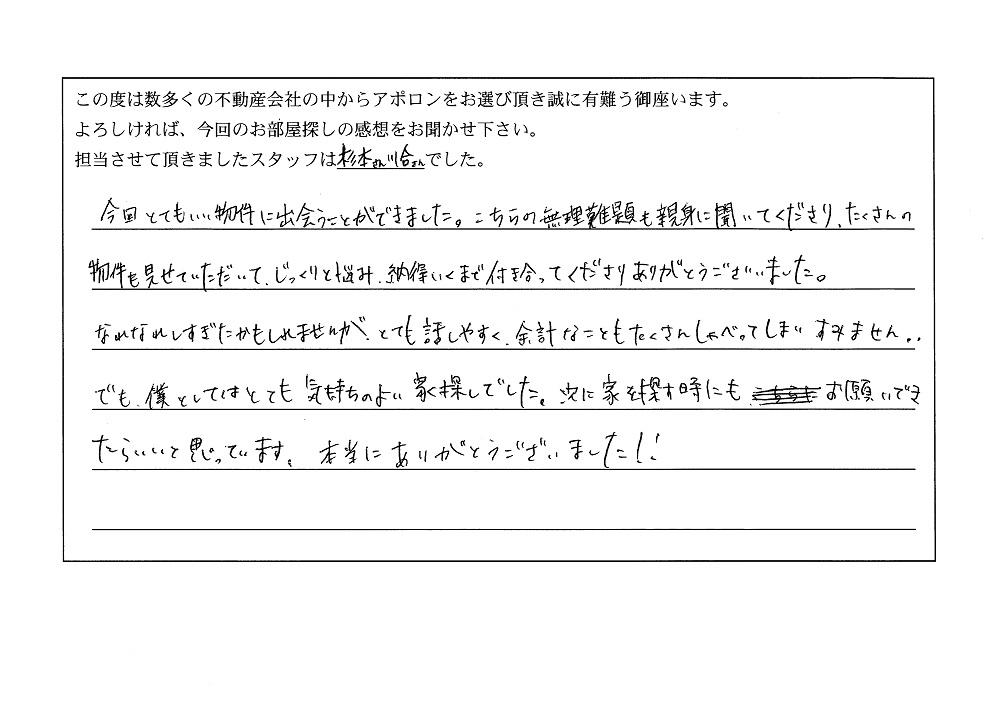 この度は数多くの不動産会社の中からアポロンをお選び頂き誠に有難う御座います。
よろしければ、今回のお部屋探しの感想をお聞かせ下さい。
担当させて頂きましたスタッフは杉本さん川合さんでした。
今回とてもいい物件に出会うことができました。こちらの無理難題も親身に聞いてくださり、たくさんの
物件も見せていただいて、じっくりと悩み、納得いくまで付き合ってくださりありがとうございました。
なれなれしすぎたかもしれませんが、とても話しやすく、余計なこともたくさんしゃべってしまいすみません..
でも、僕としてはとても気持ちのよい家探しでした。次に家を探す時にもお願いでき
たらいいと思っています。本当にありがとうございました!!